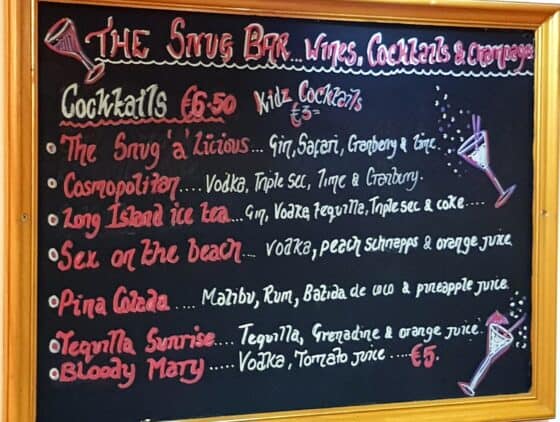 THE SNUG BAR... Wines, Cocktails & Champagne
Cocktails €6.50 Kidz Cocktails
€3=
The Snug 'a' Licious... Gin, Safari, Cranbery & Lime.
Cosmopolitan.... Vodka, Triple sec, Lime & Cranbury.
Long Island ice tea... Gin, Vodka, Tequilla, Triple sec & coke....
Sex on the beach... Vodka, peach schnapps & orange juice.
Pina Colada .... Malibu, Rum, Batida de coco & pineapple juice.
Tequilla Sunrise.... Tequilla, Grenadine & orange juice.
Bloody Mary ..... Vodka, Tomato juice ....€5.